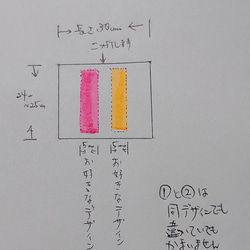 長さ30cm
二つ折り
24cm
~25cm
5cm
5cm
お好きなデザイン
お好きなデザイン
①と②は
同デザインでも
違っていても
かまいません